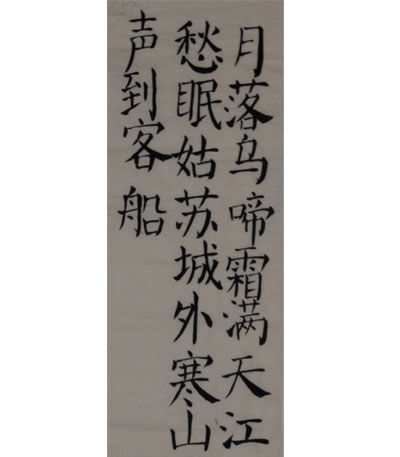 月落乌啼霜满天江
愁眠姑苏城外寒山
声到客船